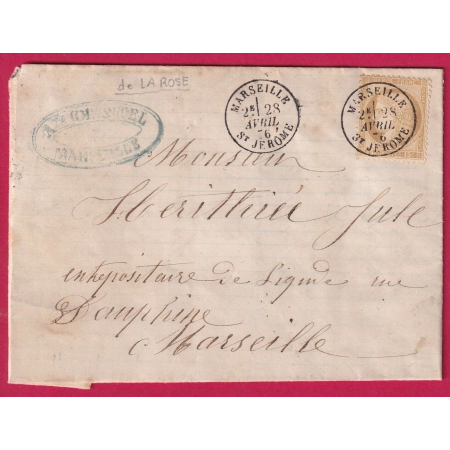 de LA ROSE
MARSEILLE
2E 28
AVRIL
76
ST JEROME
MARSEILLE
2E 28
AVRIL
6
ST JEROME
MARSEILLE
Monsieur
Jule
entrepositaire de rue
Dauphine
Marseille